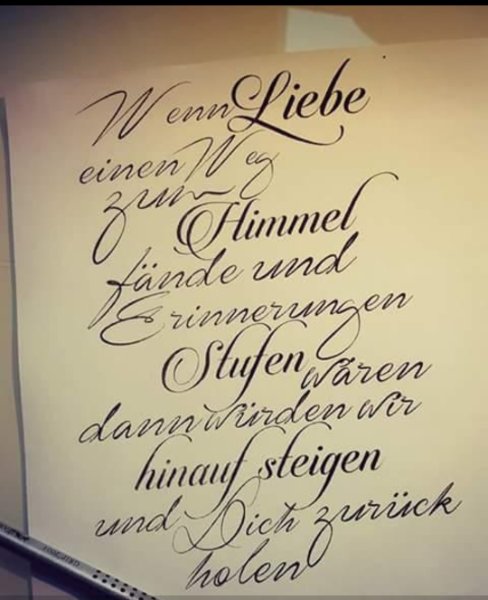 Wenn Liebe
einen Weg
zum
Himmel
fände und
Erinnerungen
Stufen wären
dann würden wir
hinauf steigen
und Dich zurück
holen